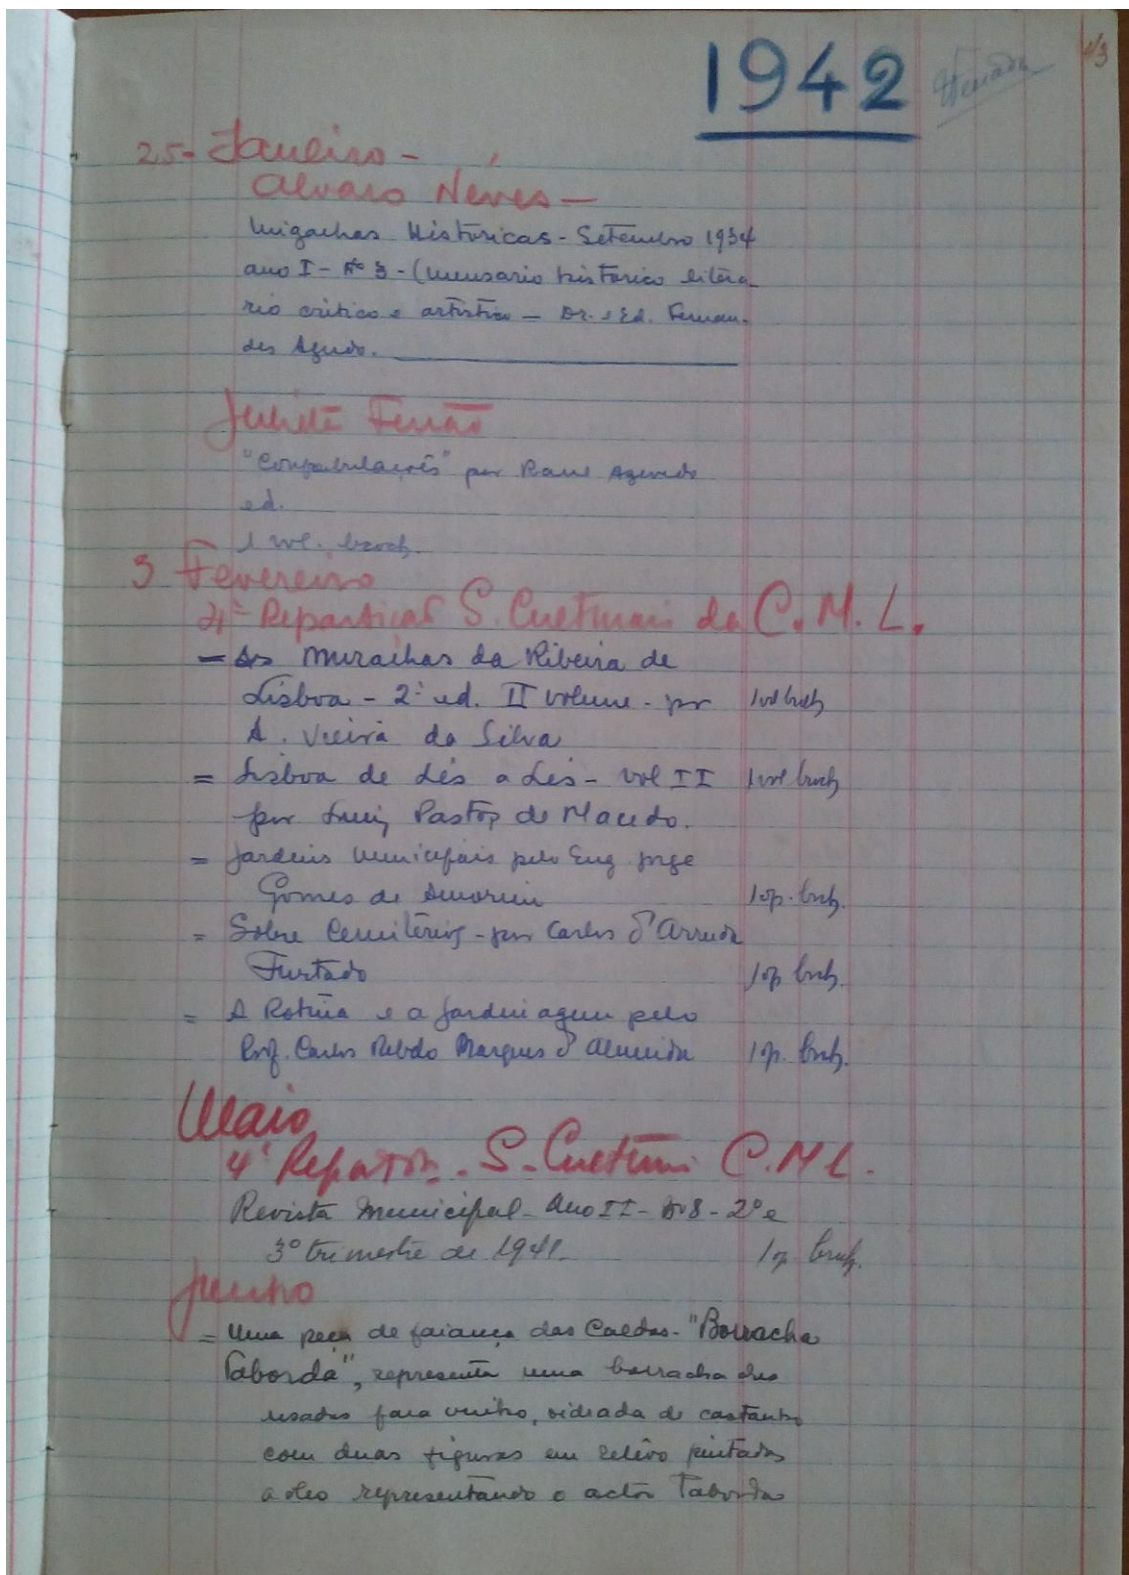 1942
25- Janeiro -
Alvaro Neves -
Migalhas Históricas - Setembro 1934
ano I - Nº 3 - (mensario histórico literá
rio critico e artistico - Dr. e Ed. Fernan-
des Agudo.
Julieta Ferrão
"Confabulações" por Raul Azevedo
ed.
1 vol. broch.
3 Fevereiro
4ª Repartição S. Culturais da C. M. L.
- As Muralhas da Ribeira de
Lisboa - 2ª ed. II volume - por 1 vol broch
A. Vieira da Silva
= Lisboa de Lés a Lés - vol II 1 vol broch
por Luiz Pastor de Macedo.
= Jardins Municipais pelo Eng Jorge
Gomes de Amorim 1 op. broch.
= Sobre Cemitérios - por Carlos d'Arruda
Furtado 1 op. broch.
= A Rotina e a Jardinagem pelo
Prof. Carlos Rebelo Marques d'Almeida 1 op. broch.
Maio
4ª Repartição - S. Culturais C. M L.
Revista Municipal - Ano II - Nº 8 - 2º e
3º trimestre de 1941. 1 op. broch.
Junho
= Uma peça de faiança das Caldas - "Borracha
Taborda", representa uma borracha das
usadas para vinho, vidrada de castanho
com duas figuras em relêvo pintadas
a oleo representando o actor Taborda